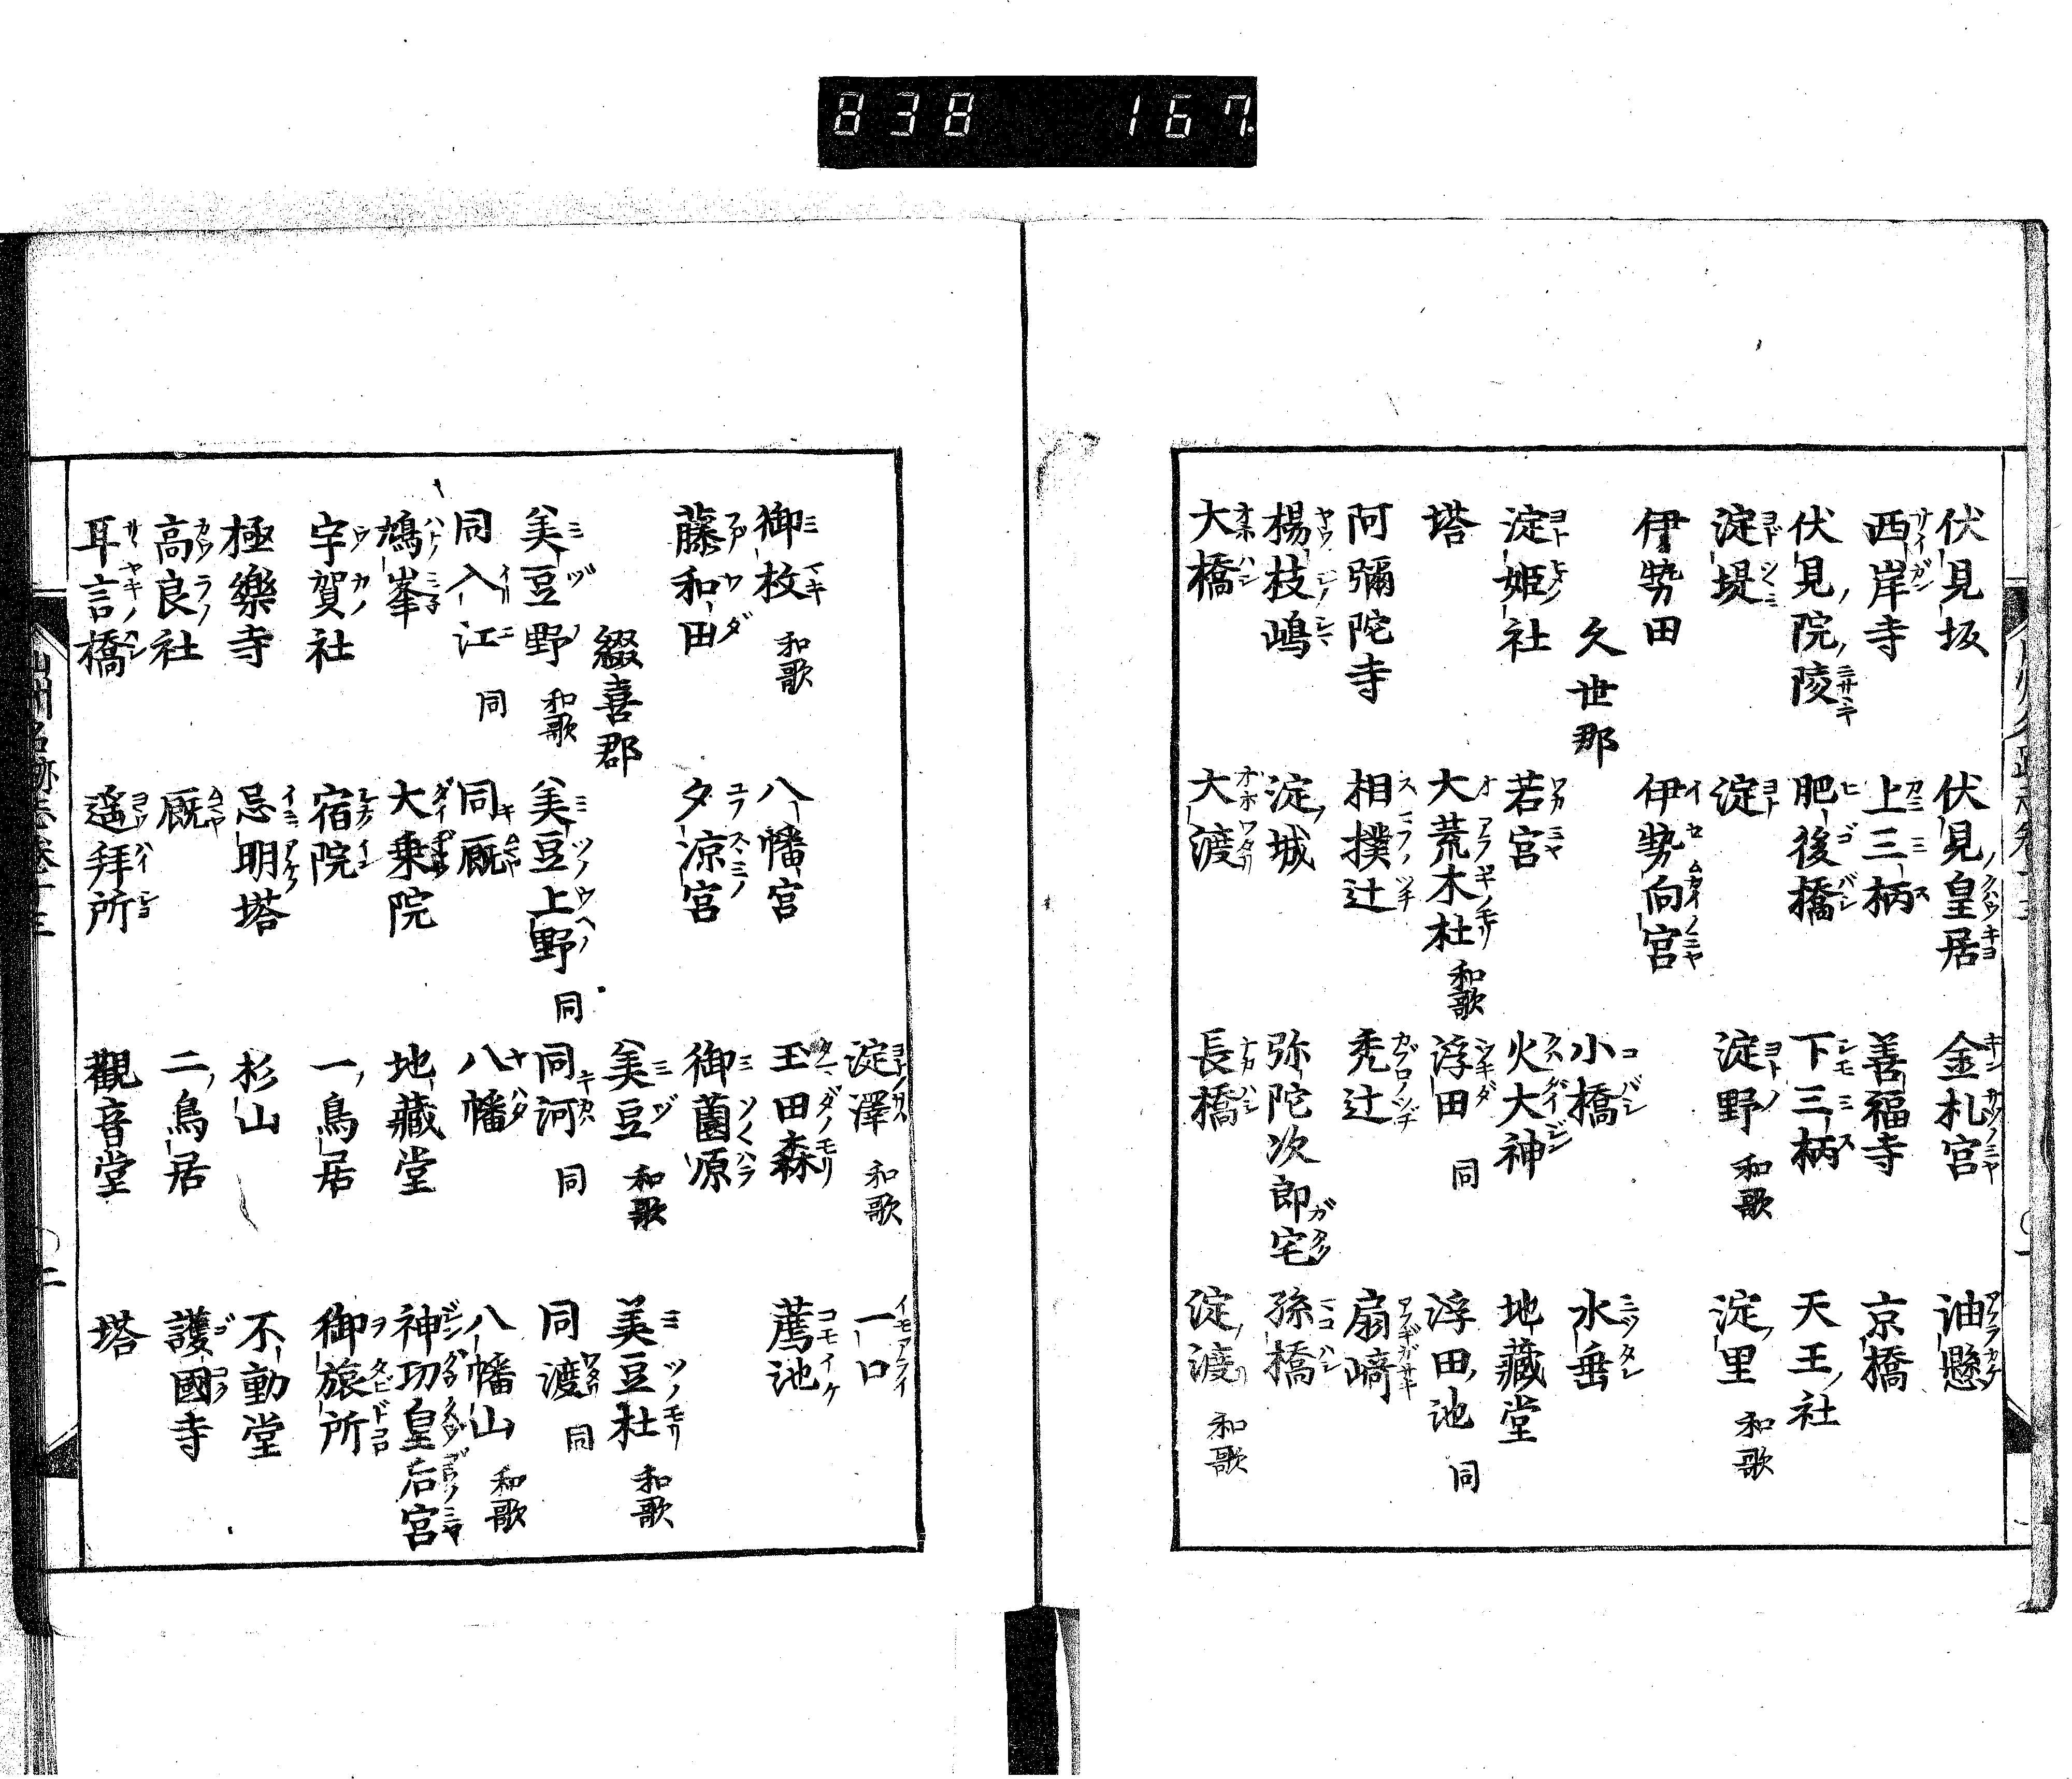 838 167
伏見坂 伏見皇居 金札宮 油懸
西岸寺 上三栖 善福寺 京橋
伏見院陵 肥後橋 下三栖 天王社
淀堤 淀 淀野 和歌 淀里 和歌
伊勢田 伊勢向宮
久世郡 小橋 水垂
淀姫社 若宮 火大神 地藏堂
塔 大荒木杜 和歌 浮田 同 浮田池 同
阿彌陀寺 相撲辻 禿辻 扇﨑
楊枝嶋 淀城 弥陀次郎宅 孫橋
大橋 大渡 長橋 淀渡 和歌
淀澤 和歌 一口
御枚 和歌 八幡宮 玉田森 薦池
藤和田 夕凉宮 御薗原
綴喜郡 美豆 和歌 美豆杜 和歌
美豆野 和歌 美豆上野 同 同河 同 同渡 同
同入江 同 同厩 八幡 八幡山 和歌
鳩峯 大乗院 地藏堂 神功皇后宮
宇賀社 宿院 一鳥居 御旅所
極樂寺 忌明塔 杉山 不動堂
高良社 厩 二鳥居 護國寺
耳言橋 遥拜所 觀音堂 塔